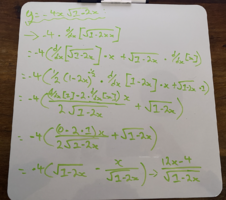 y = -4x√1-2x
→ -4 · d/dx [√1-2x · x]
= -4 (d/dx [√1-2x] · x + √1-2x · d/dx [x])
= -4 (1/2 (1-2x)^-1/2 · d/dx [1-2x] · x + √1-2x · 1)
= -4 ((d/dx [1] - 2 · d/dx [x]) x / 2√1-2x + √1-2x)
= -4 ((0 - 2 · 1) x / 2√1-2x + √1-2x)
= -4 (√1-2x - x / √1-2x) → 12x-4 / √1-2x